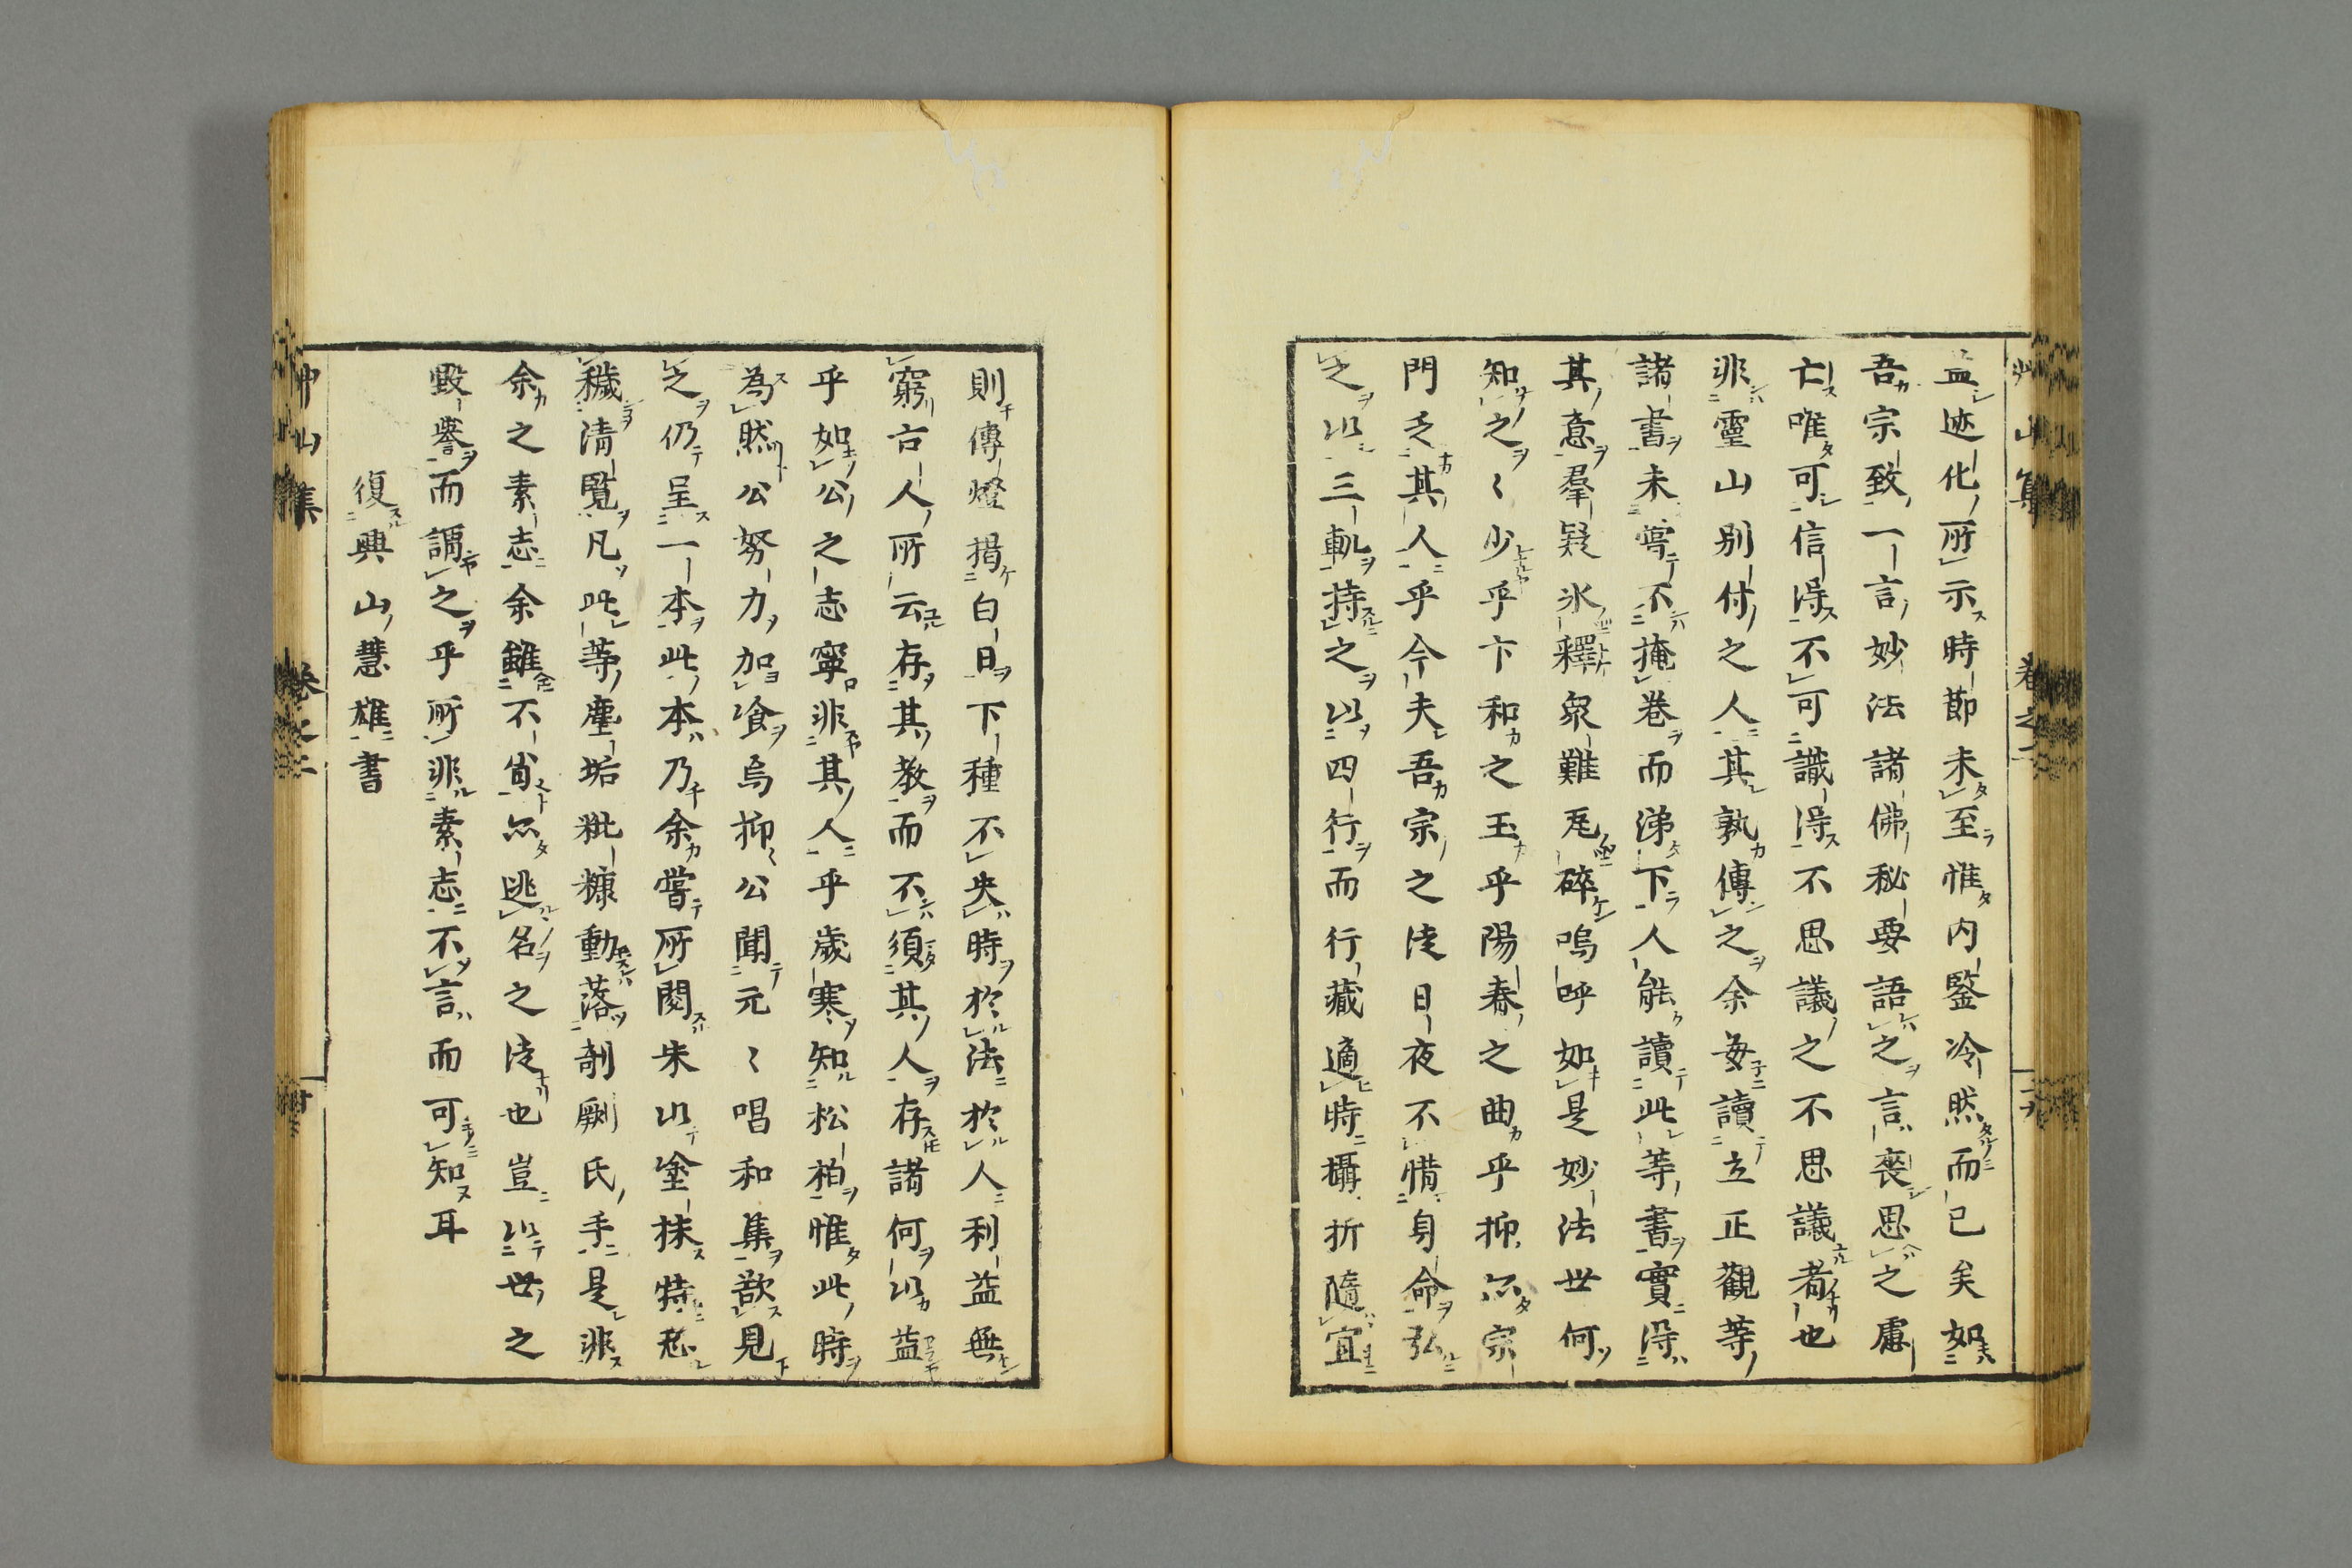 艸山集 卷之二
蓋迹化所示時節未至惟內鑒冷然而已矣如
吾宗致一言妙法諸佛秘要語之言喪思之慮
亡唯可信得不可識得不思議之不思議者也
非靈山別付之人其孰傳之余每讀立正觀等
諸書未嘗不掩卷而涕下人能讀此等書實得
其意羣疑氷釋衆難瓦碎嗚呼如是妙法世何
知之〻少乎卞和之玉乎陽春之曲乎抑亦宗
門乏其人乎今夫吾宗之徒日夜不惜身命弘
之以三軌持之以四行而行藏適時攝折隨宜
則傳燈揭白日下種不失時於法於人利益無
窮古人所云存其教而不須其人存諸何以益
乎如公之志寧非其人乎歲寒知松柏惟此時
為然公努力加飡烏抑〻公聞元〻唱和集欲見
之仍呈一本此本乃余嘗所閱朱以塗抹特恐
穢清覽凡此等塵垢粃糠動落剞劂氏手是非
余之素志余雖不肖亦逃名之徒也豈以世之
毀譽而謂之乎所非素志不言而可知耳
復興山慧雄書
艸山集 卷之二